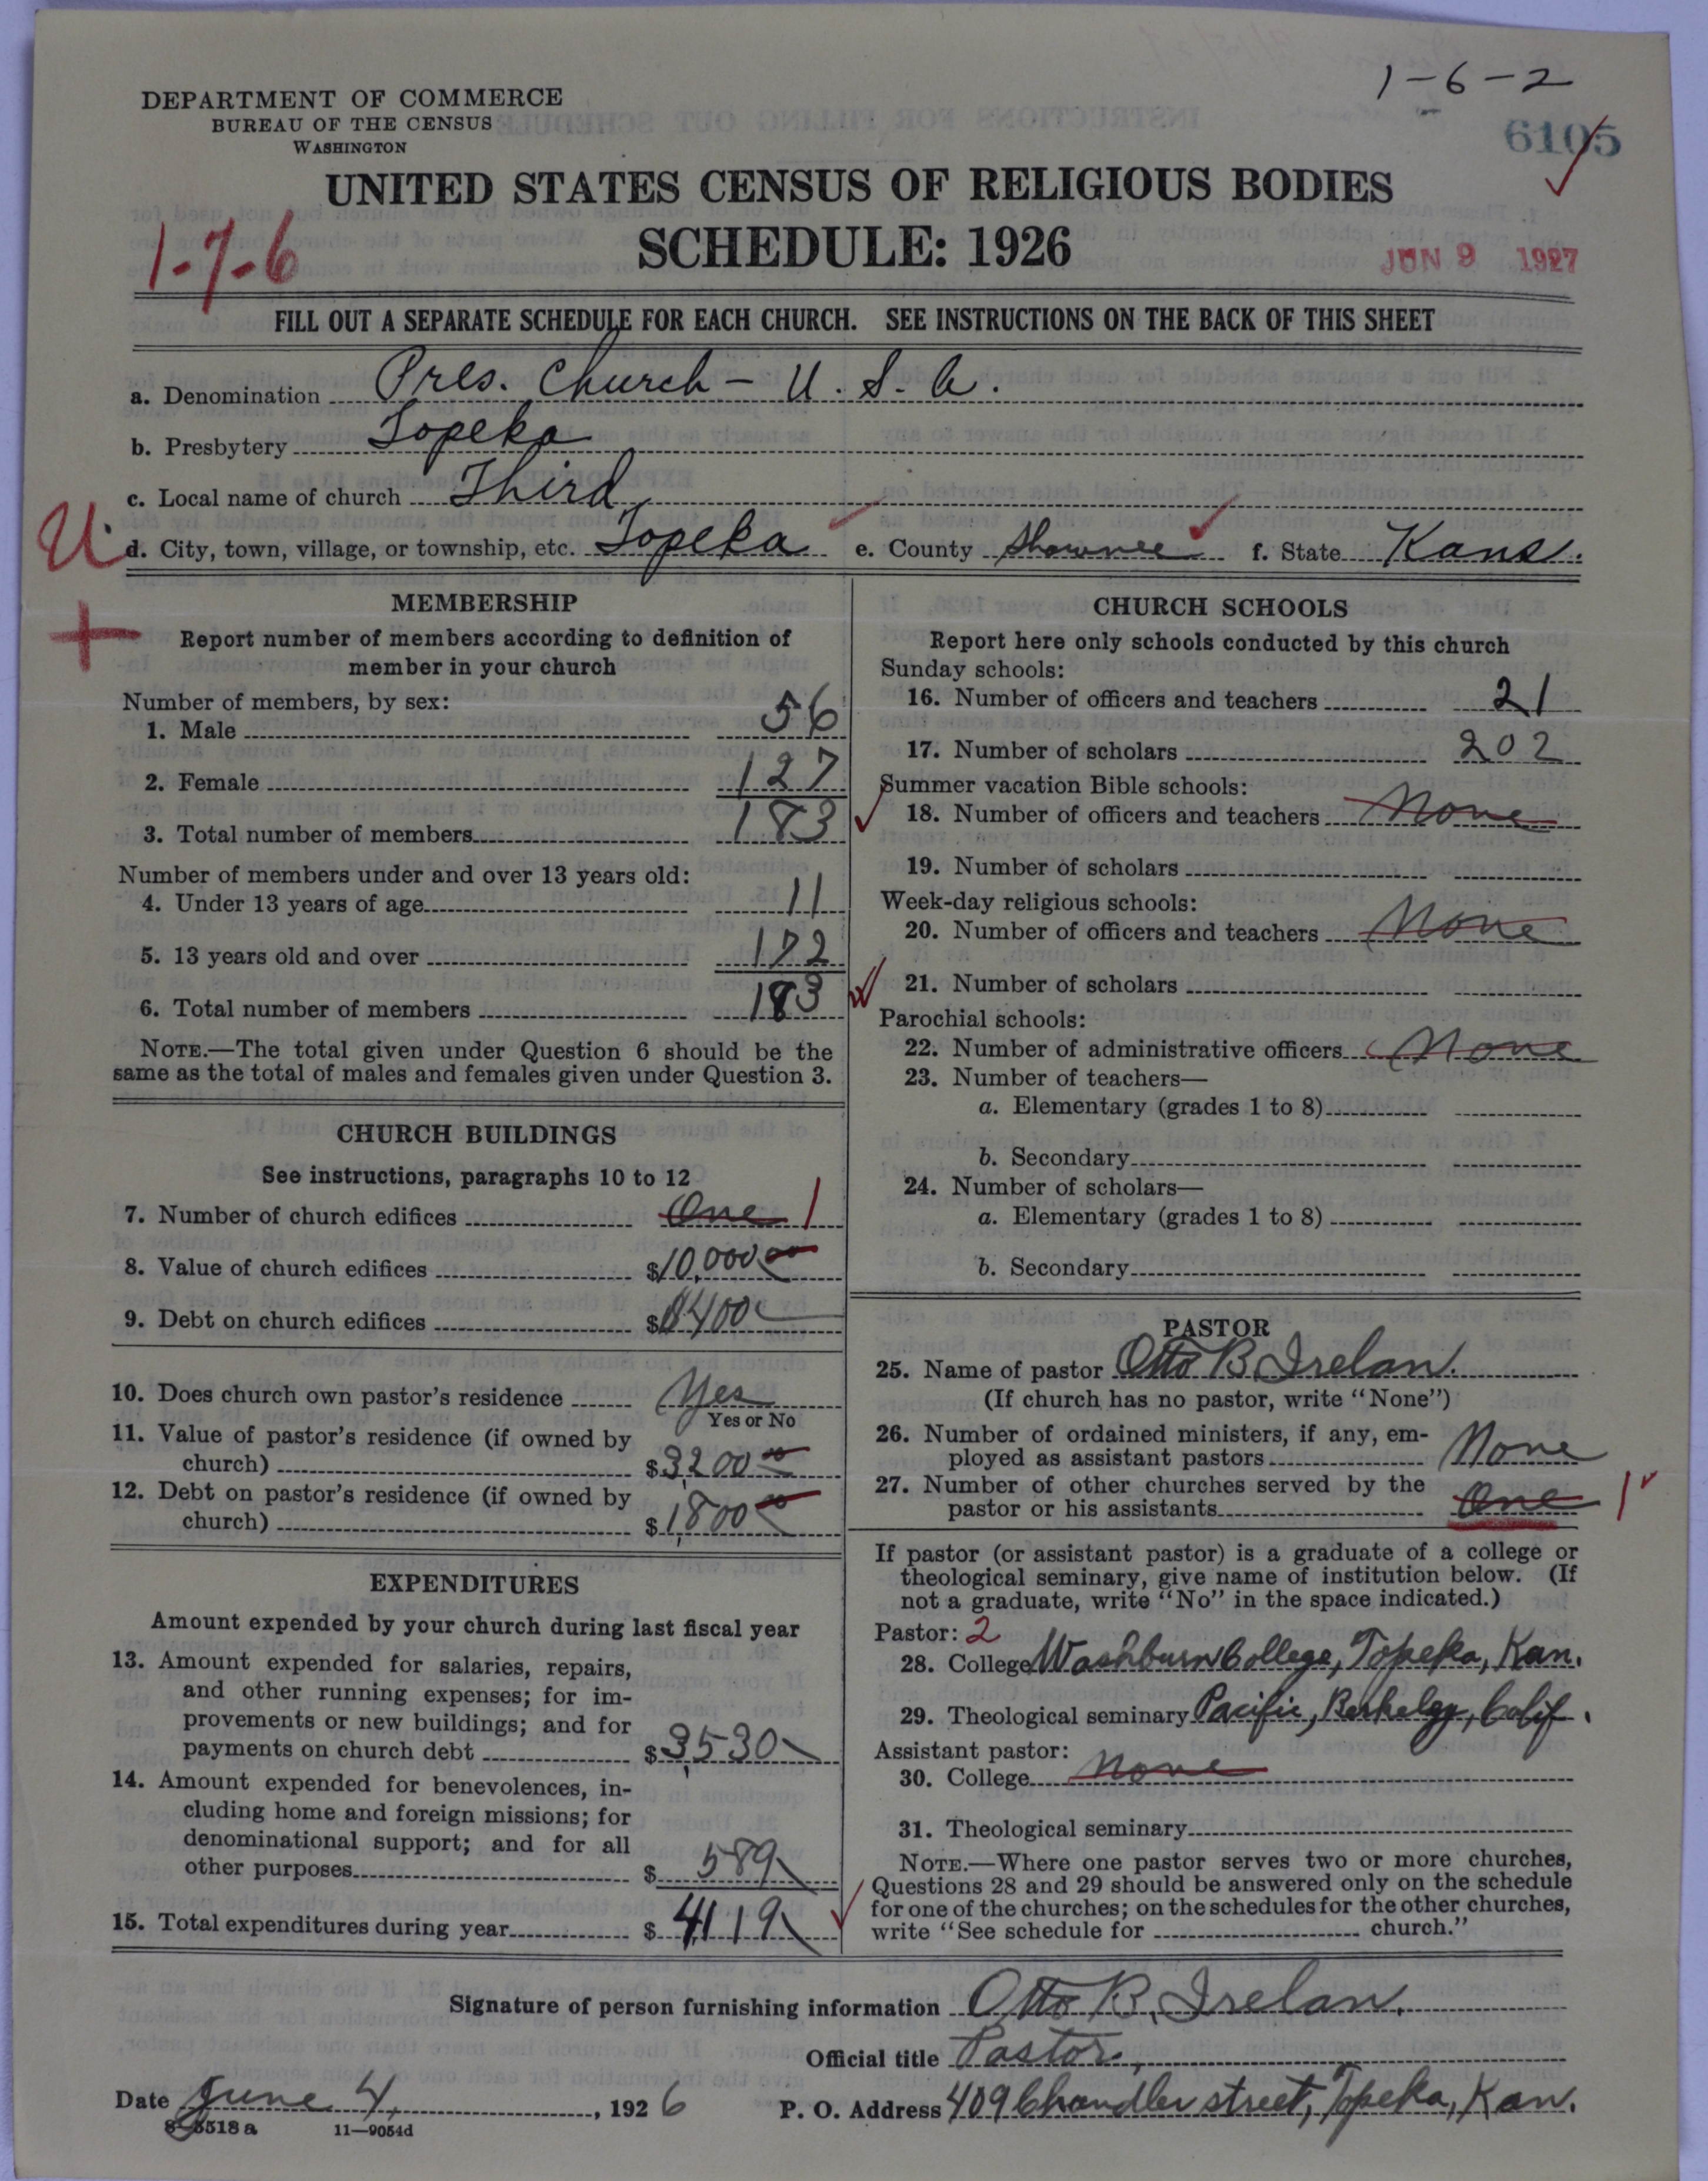 1-6-2
DEPARTMENT OF COMMERCE
BUREAU OF THE CENSUS
WASHINGTON
6105
UNITED STATES CENSUS OF RELIGIOUS BODIES
SCHEDULE: 1926
1-7-6
JUN 9 1927
FILL OUT A SEPARATE SCHEDULE FOR EACH CHURCH. SEE INSTRUCTIONS ON THE BACK OF THIS SHEET
a. Denomination Pres. Church - U. S. A.
b. Presbytery Topeka
c. Local name of church Third
U. d. City, town, village, or township, etc. Topeka e. County Shawnee f. State Kans.
+
MEMBERSHIP
Report number of members according to definition of
member in your church
Number of members, by sex:
1. Male 56
2. Female 127
3. Total number of members 183
Number of members under and over 13 years old:
4. Under 13 years of age 11
5. 13 years old and over 172
6. Total number of members 183
NOTE.—The total given under Question 6 should be the
same as the total of males and females given under Question 3.
CHURCH BUILDINGS
See instructions, paragraphs 10 to 12
7. Number of church edifices One 1
8. Value of church edifices $10,000 00
9. Debt on church edifices $ 400
10. Does church own pastor's residence Yes
Yes or No
11. Value of pastor's residence (if owned by
church) $3,200 00
12. Debt on pastor's residence (if owned by
church) $1,800 00
EXPENDITURES
Amount expended by your church during last fiscal year
13. Amount expended for salaries, repairs,
and other running expenses; for im-
provements or new buildings; and for
payments on church debt $3,530
14. Amount expended for benevolences, in-
cluding home and foreign missions; for
denominational support; and for all
other purposes $ 589
15. Total expenditures during year $ 4119
CHURCH SCHOOLS
Report here only schools conducted by this church
Sunday schools:
16. Number of officers and teachers 21
17. Number of scholars 202
Summer vacation Bible schools:
18. Number of officers and teachers None
19. Number of scholars
Week-day religious schools:
20. Number of officers and teachers None
21. Number of scholars
Parochial schools:
22. Number of administrative officers None
23. Number of teachers—
a. Elementary (grades 1 to 8)
b. Secondary
24. Number of scholars—
a. Elementary (grades 1 to 8)
b. Secondary
PASTOR
25. Name of pastor Otto B Irelan.
(If church has no pastor, write "None")
26. Number of ordained ministers, if any, em-
ployed as assistant pastors None
27. Number of other churches served by the
pastor or his assistants One 1
If pastor (or assistant pastor) is a graduate of a college or
theological seminary, give name of institution below. (If
not a graduate, write "No" in the space indicated.)
Pastor: 2
28. College Washburn College, Topeka, Kan.
29. Theological seminary Pacific, Berkeley, Calif.
Assistant pastor:
30. College None
31. Theological seminary
NOTE.—Where one pastor serves two or more churches,
Questions 28 and 29 should be answered only on the schedule
for one of the churches; on the schedules for the other churches,
write "See schedule for church."
Signature of person furnishing information Otto B. Irelan.
Official title Pastor,
Date June 4, 1926
P. O. Address 409 Chandler street, Topeka, Kan.
8-5518 a 11—9054d